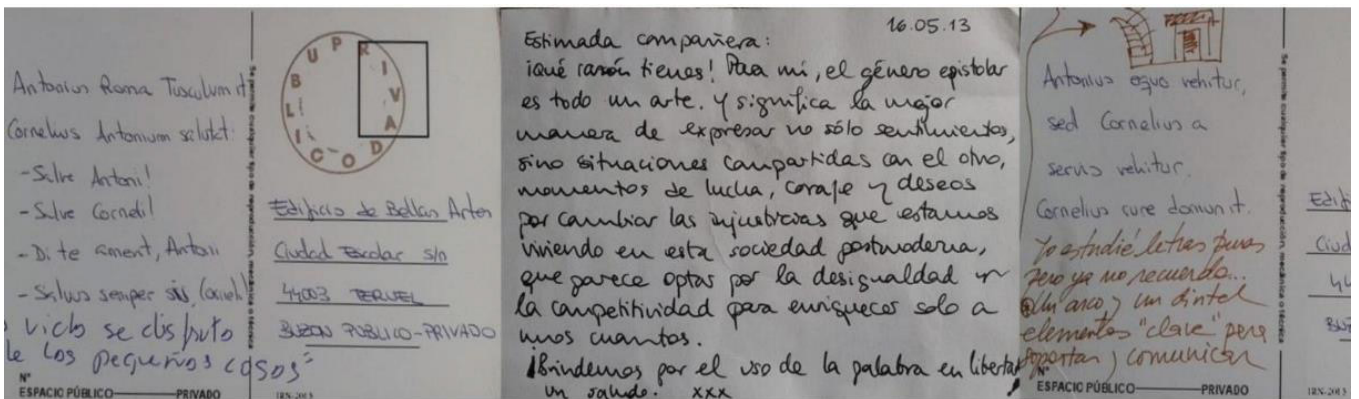 Antonius Roma Tusculum it
Cornelius Antonium salutat:
- Salve Antoni!
- Salve Corneli!
- Di te ament, Antoni
- Salvus semper sis,
vida se disfruta
de las pequeñas cosas"
Nº
ESPACIO PÚBLICO PRIVADO
Se permite cualquier tipo de reproducción, mecánica o técnica
PUBLIC PRIVADO
Edificio de Bellas Artes
Ciudad Escolar s/n
44003 TERUEL
BUZON PUBLICO-PRIVADO
IRN-2013
16.05.13
Estimada compañera:
¡Qué razón tienes! Para mí, el género epistolar
es todo un arte. Y significa la mejor
manera de expresar no sólo sentimientos,
sino situaciones compartidas con el otro,
momentos de lucha, coraje y deseos
por cambiar las injusticias que estamos
viviendo en esta sociedad postmoderna,
que parece optar por la desigualdad y
la competitividad para enriquecer solo a
unos cuantos.
¡Brindemos por el uso de la palabra en libertad!
Un saludo. xxx
Antonius equo vehitur,
sed Cornelius a
servis vehitur.
Cornelius cure domum it.
Yo estudié letras puras
pero ya no recuerdo...
un arco y un dintel
elementos "clave" para
soportar y comunicar
Nº
ESPACIO PÚBLICO PRIVADO
Se permite cualquier tipo de reproducción, mecánica o técnica
Edif
Ciud
44
BUZ
IRN-2013